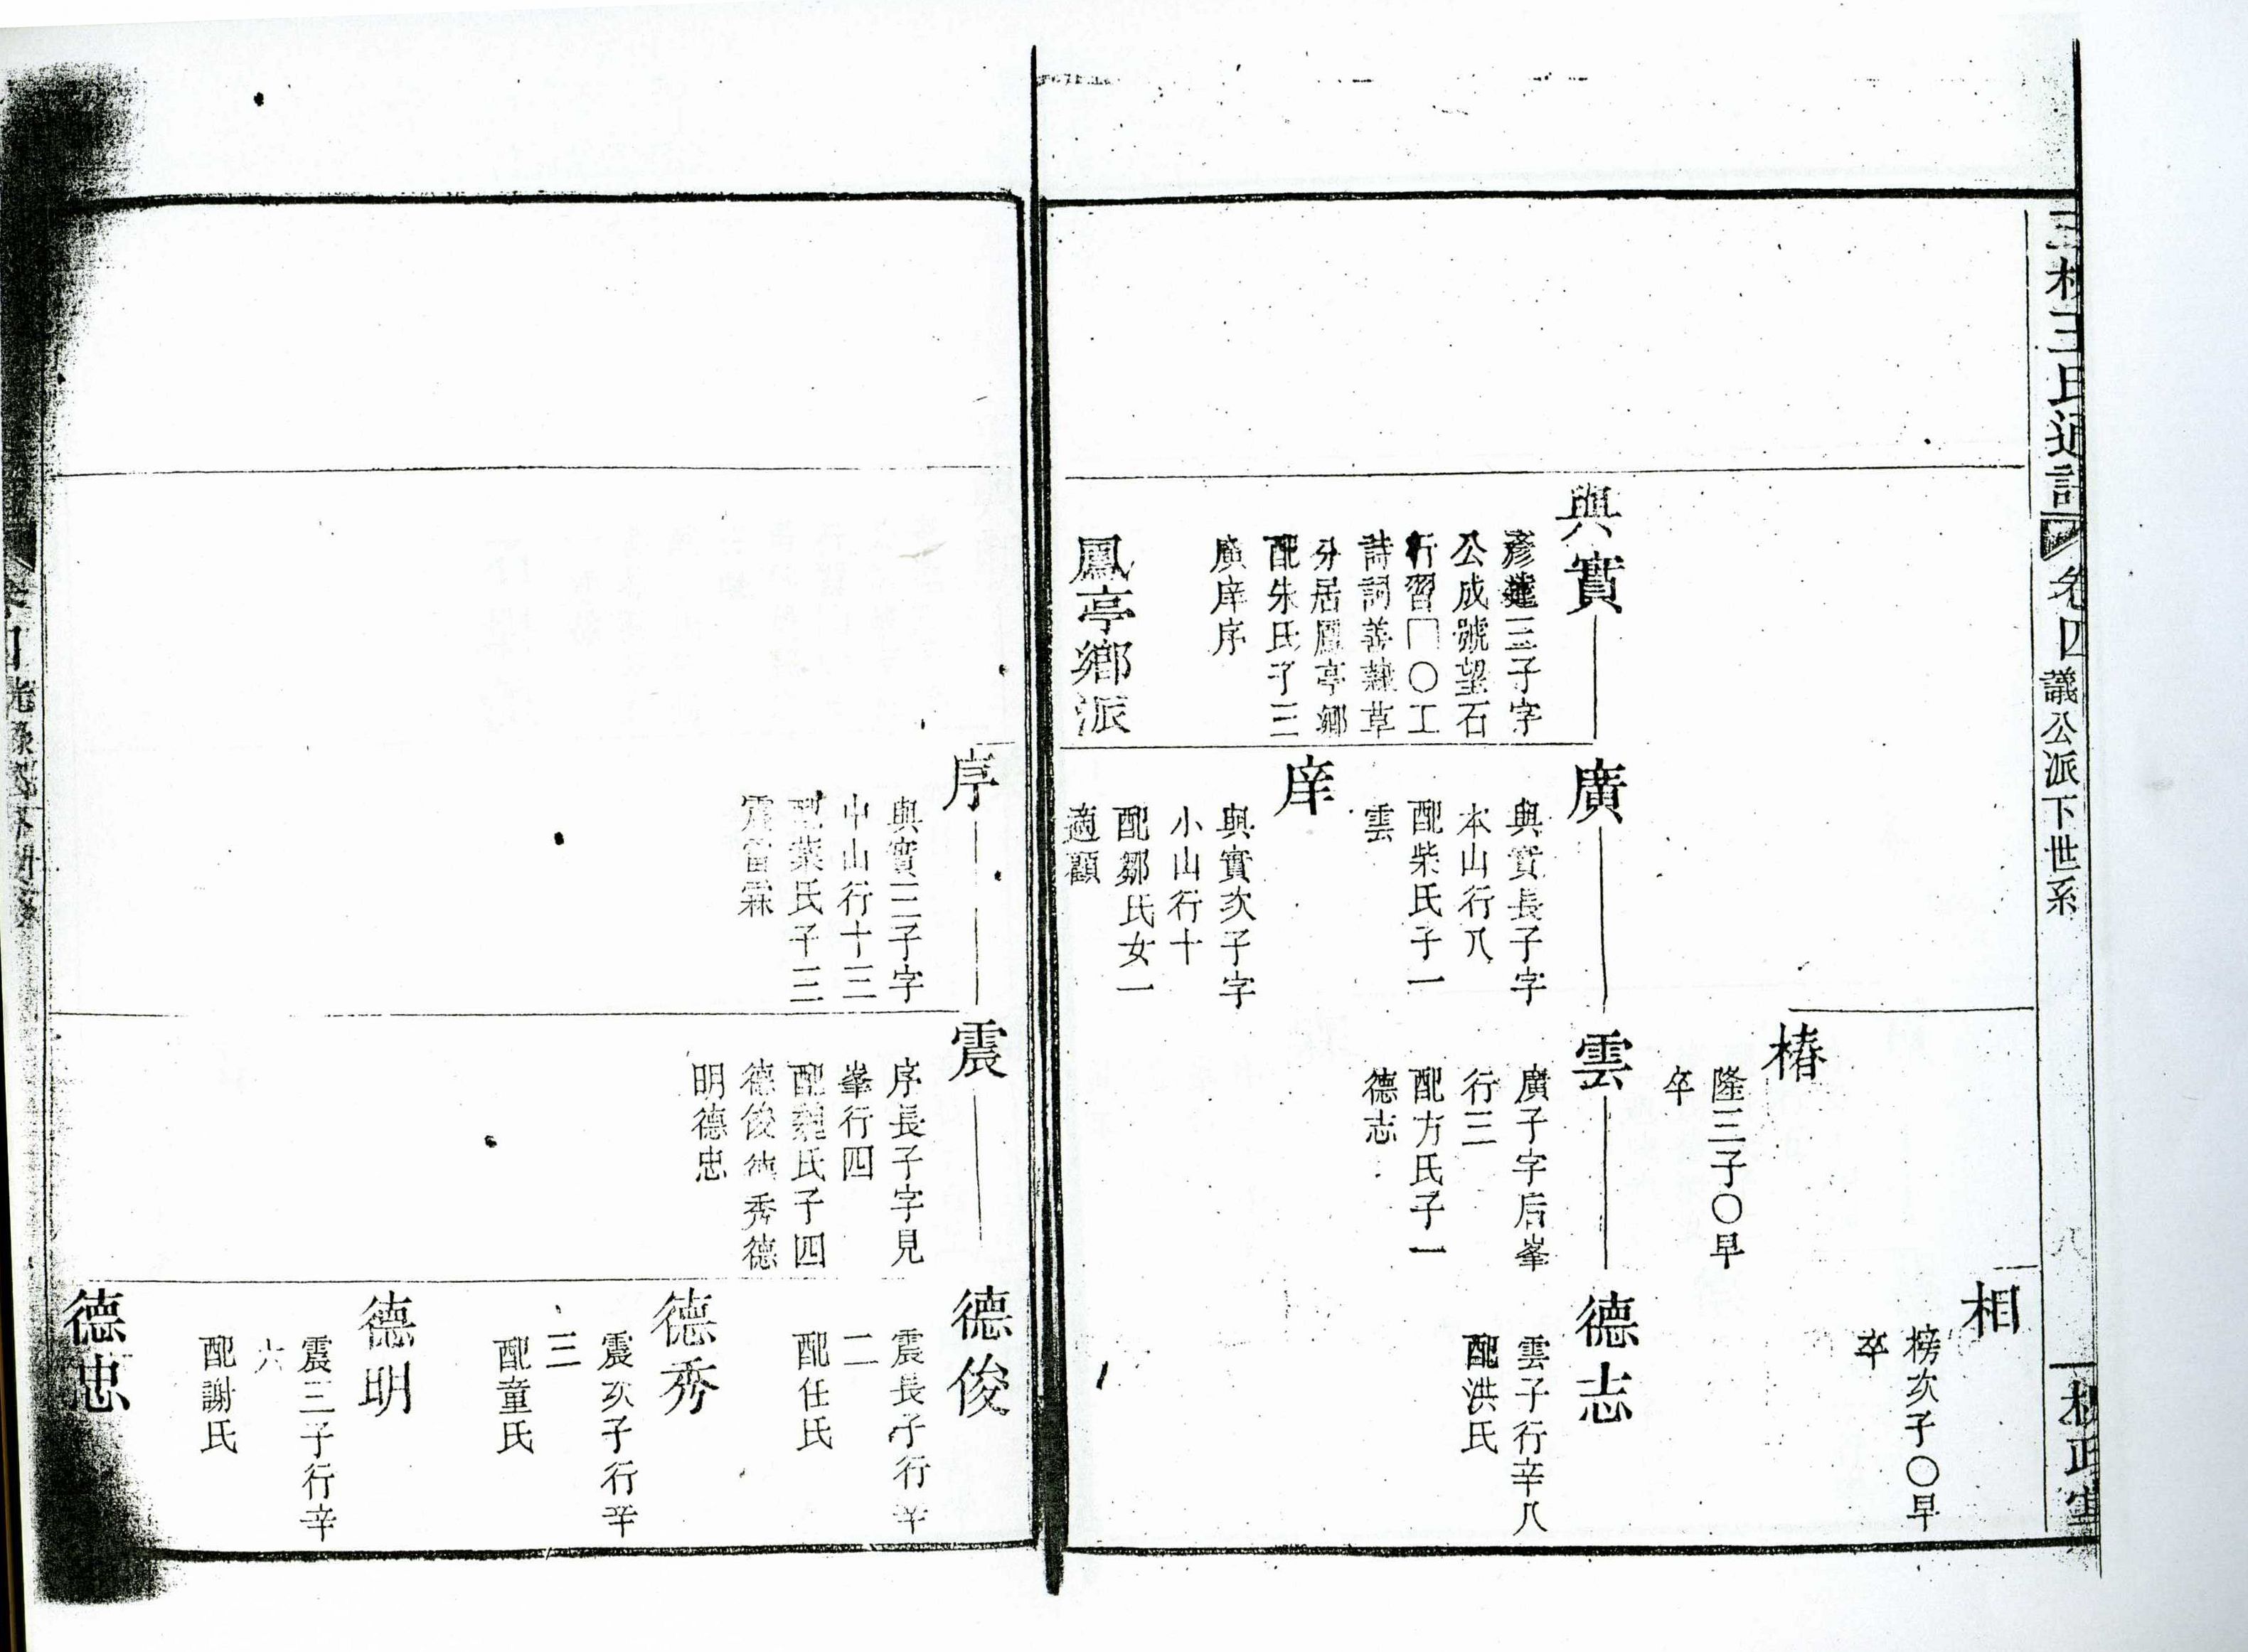 三槐王氏通譜
卷四
議公派下世系
八
相
榜次子〇早
卒
椿
隆三子〇早
卒
與實
彥達三子字
公成號望石
行習〇工
詩詞善隸草
分居鳳亭鄉
配朱氏子三
廣庠序
鳳亭鄉派
廣
與實長子字
本山行八
配柴氏子一
雲
雲
廣子字后峯
行三
配方氏子一
德志
德志
雲子行辛八
配洪氏
庠
與實次子字
小山行十
配鄒氏女一
適顧
序
與實三子字
中山行十三
配葉氏子三
震雷霖
震
序長子字見
峯行四
配氏子四
德俊德秀德
明德忠
德俊
震長子行辛
二
配任氏
德秀
震次子行辛
三
配童氏
德明
震三子行辛
六
配謝氏
德忠